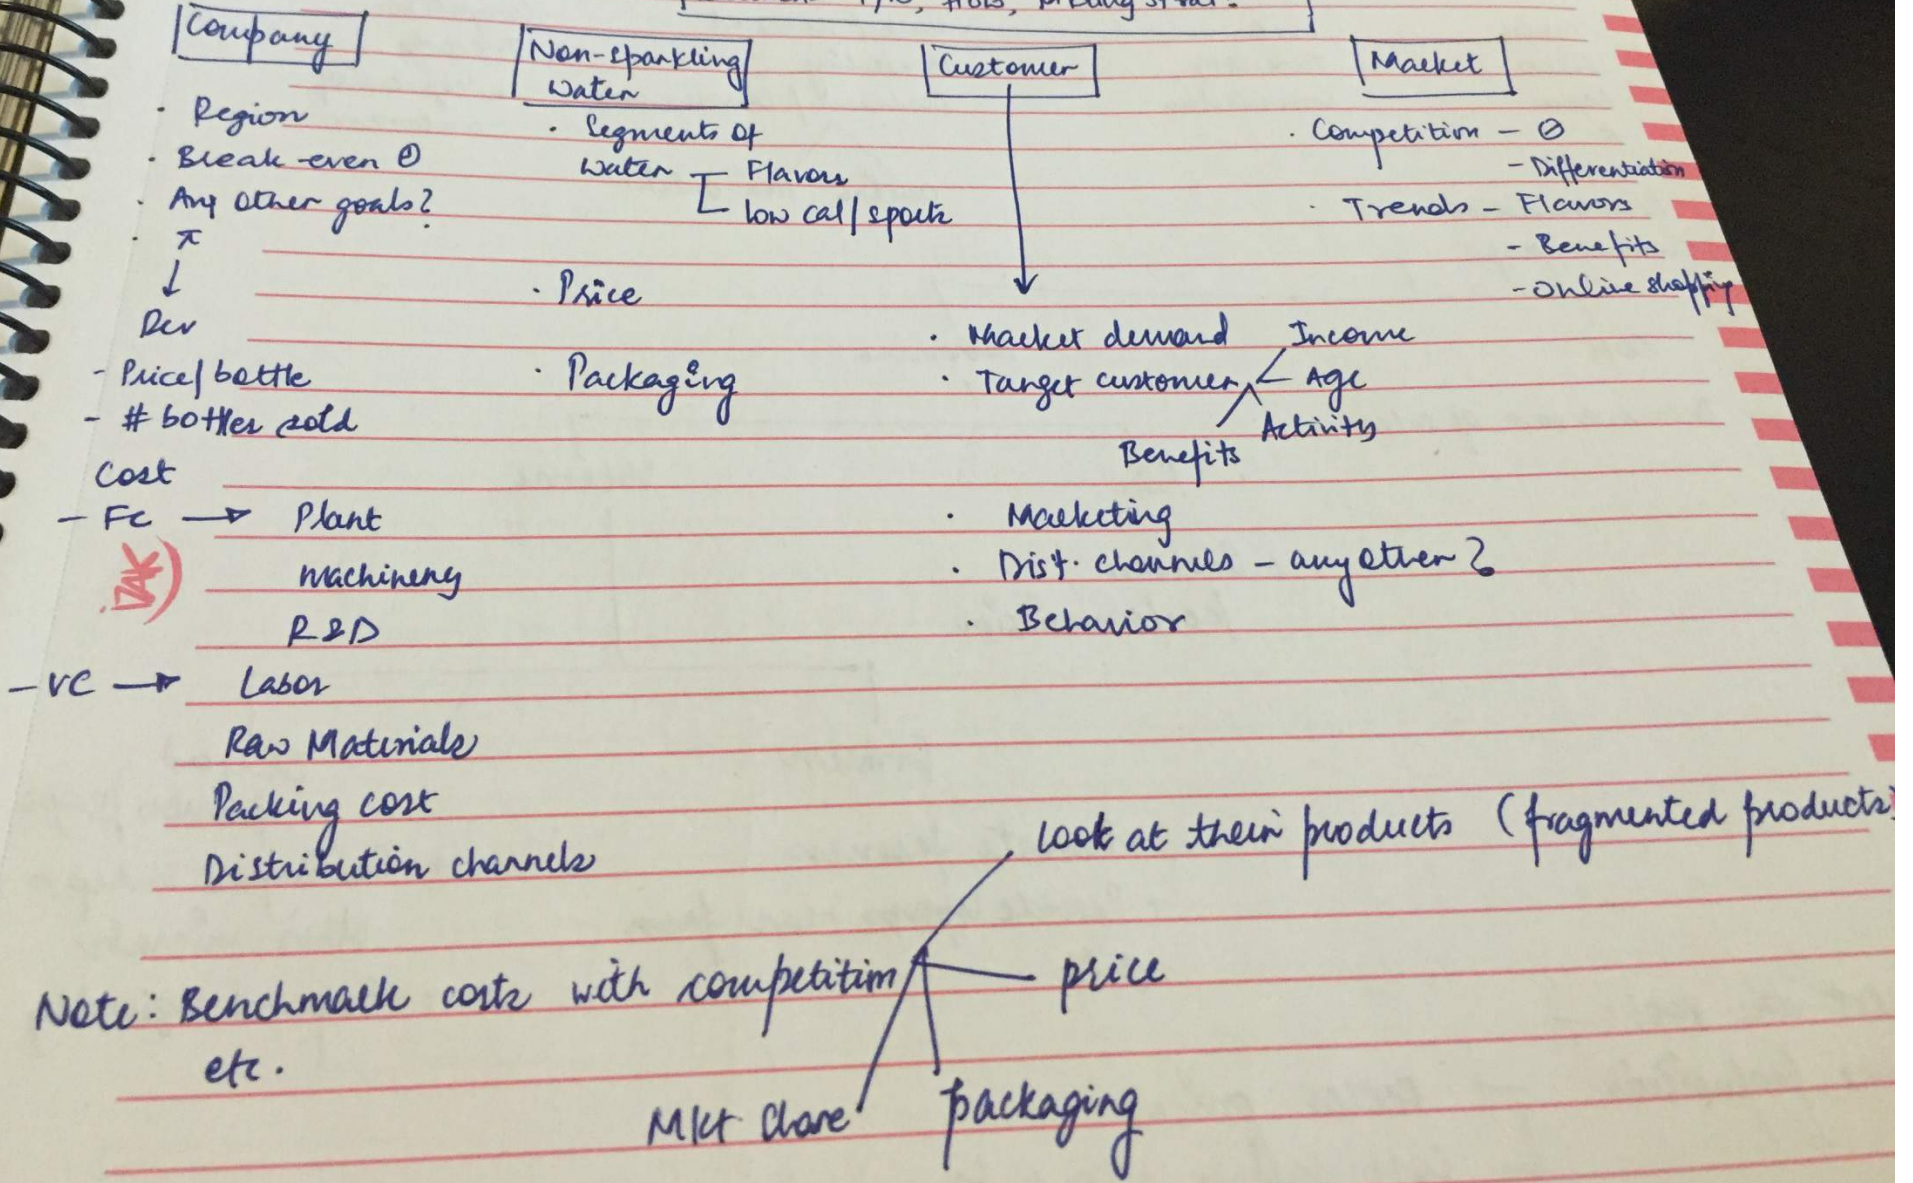 Company
Region
Break-even
Any other goals?
π
Rev
- Price/bottle
- # bottles sold
Cost
- FC → Plant
Machinery
R&D
- VC → Labor
Raw Materials
Packing cost
Distribution channels
Non-sparkling
Water
Segments of
Water
Flavors
low cal/sports
Price
Packaging
Customer
Market demand
Target customer
Income
Age
Activity
Benefits
Marketing
Dist. channels - any other?
Behavior
Market
Competition -
- Differentiation
Trends - Flavors
- Benefits
- Online shopping
Note: Benchmark costs with competition
etc.
look at their products (fragmented products)
price
packaging
Mkt share